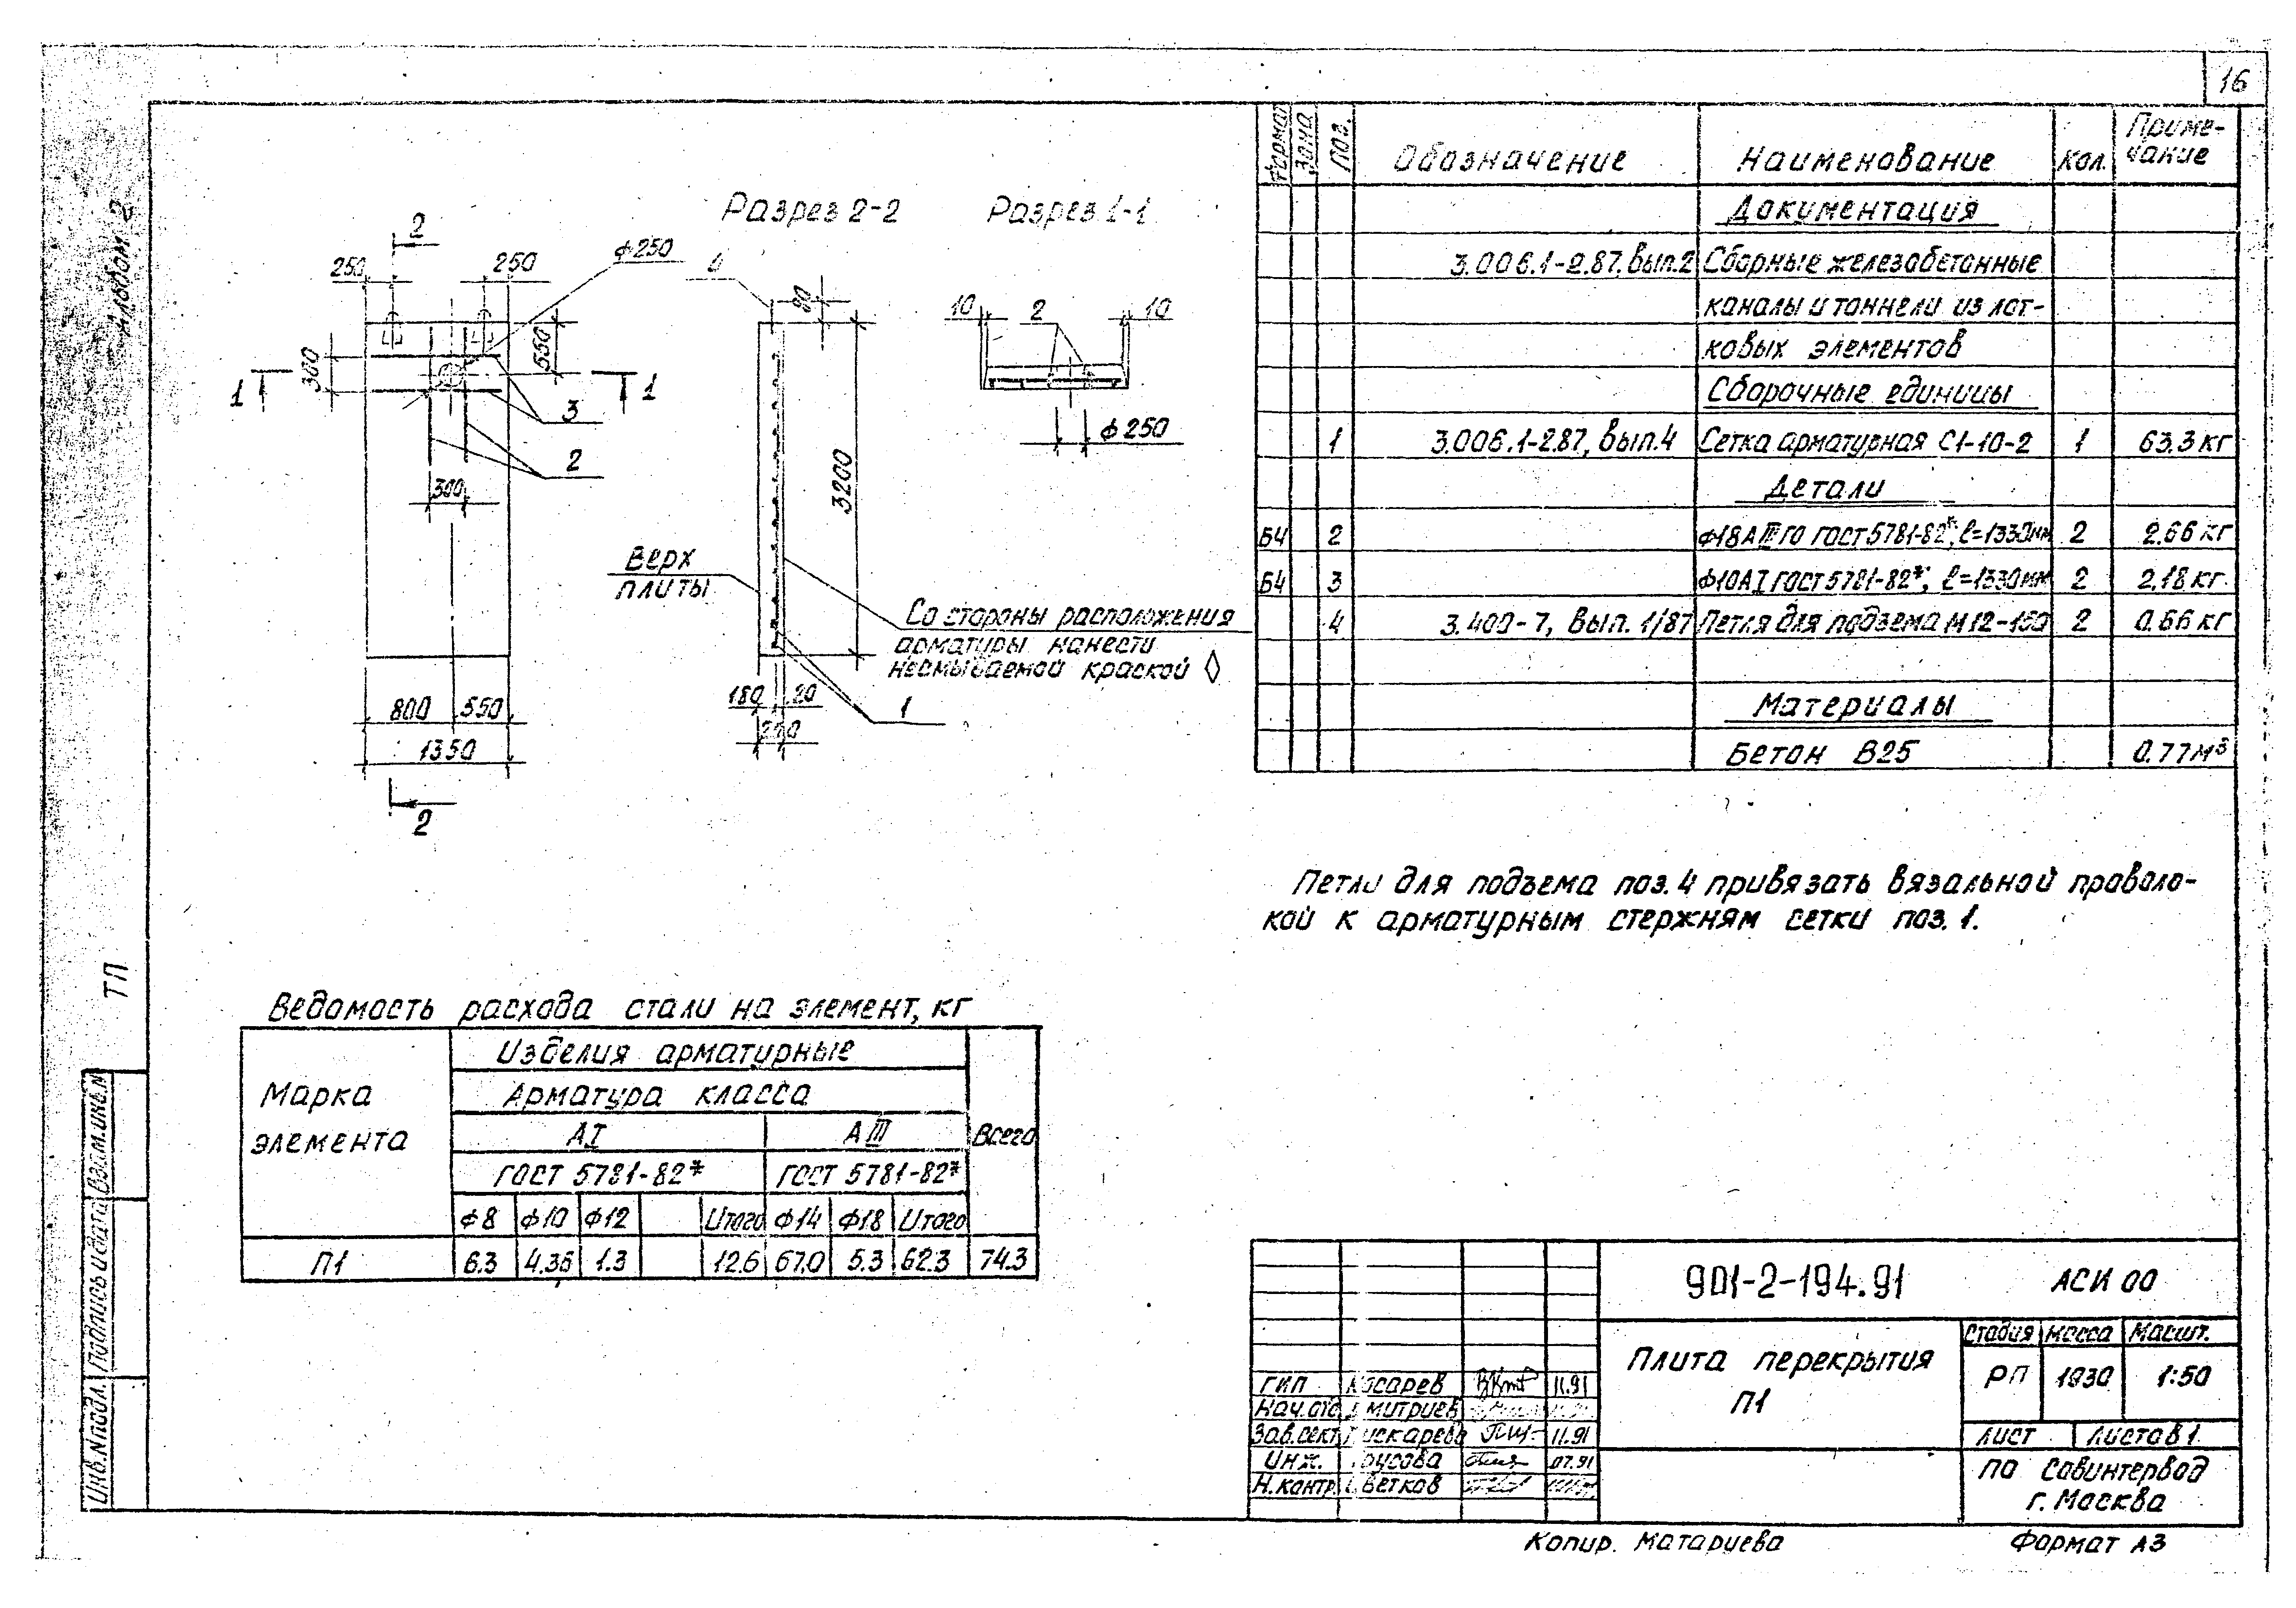 16
Альбом 2
ТП
Взам.инв.N
Подпись и дата
Инв.N подл.
Разрез 2-2
Разрез 1-1
2
250
250
ф250
300
550
1
1
3
2
300
800
550
1350
2
80
3200
Верх
плиты
Со стороны расположения
арматуры нанести
несмываемой краской ◊
180
20
200
1
10
2
10
ф250
Формат
Зона
Поз.
Обозначение
Наименование
Кол.
Приме-
чание
Документация
3.006.1-2.87, вып.2 Сборные железобетонные
каналы и тоннели из лот-
ковых элементов
Сборочные единицы
1 3.006.1-2.87, вып.4 Сетка арматурная С1-10-2 1 63.3 кг
Детали
Б4 2 ф18АIII ГО ГОСТ 5781-82*; ℓ=1330мм 2 2.66 кг
Б4 3 ф10АI ГОСТ 5781-82*; ℓ=1330мм 2 2.18 кг
4 3.400-7, вып. 1/87 Петля для подъема М12-150 2 0.66 кг
Материалы
Бетон В25 0.77м³
Петли для подъема поз. 4 привязать вязальной проволо-
кой к арматурным стержням сетки поз. 1.
Ведомость расхода стали на элемент, кг
Марка
элемента
Изделия арматурные
Арматура класса
АI АIII
Всего
ГОСТ 5781-82* ГОСТ 5781-82*
ф8 ф10 ф12 Итого ф14 ф18 Итого
П1 6.3 4.36 1.3 12.6 67.0 5.3 62.3 74.3
901-2-194.91 АСИ 00
Плита перекрытия
П1
Стадия Масса Масшт.
РП 1930 1:50
Лист Листов 1
ПО Совинтервод
г. Москва
ГИП Косарев 11.91
Нач.отд. Дмитриев
Зав.сект. Пискарева 11.91
Инж. 07.91
Н.контр. Цветков
Копир. Матариева
Формат А3